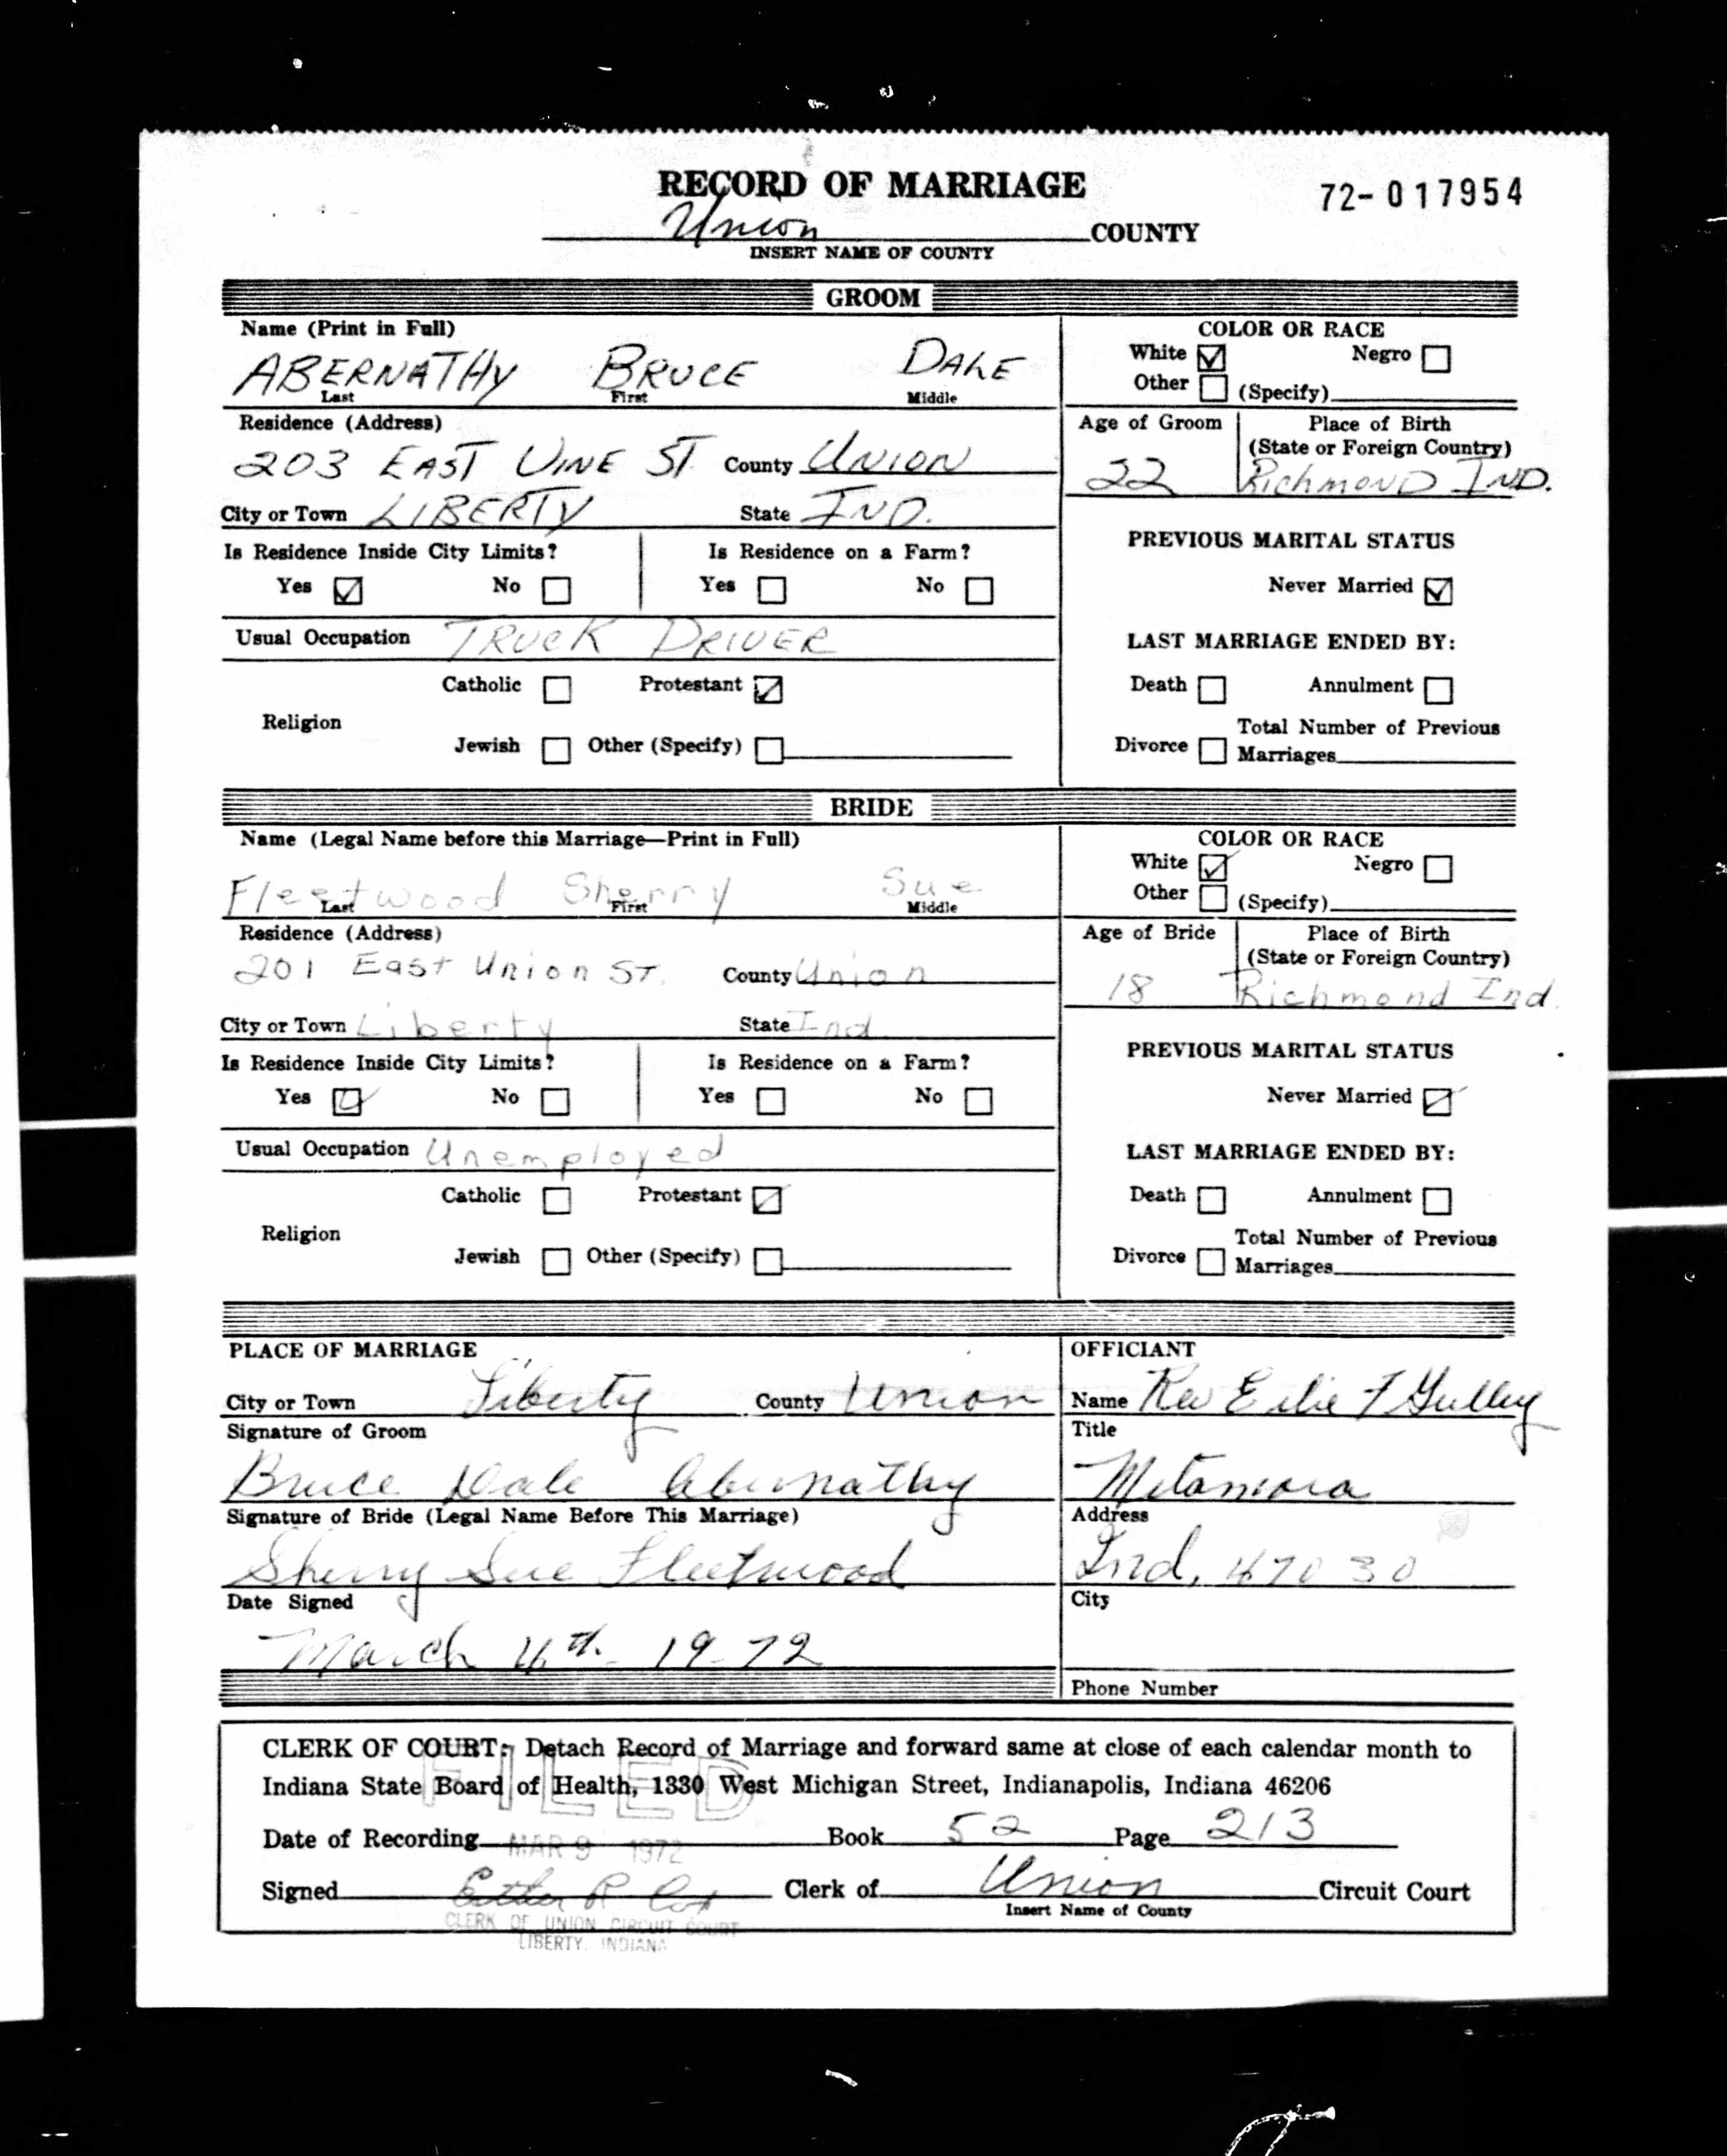 RECORD OF MARRIAGE
72-017954
Union COUNTY
INSERT NAME OF COUNTY
GROOM
Name (Print in Full)
ABERNATHY BRUCE DALE
Last First Middle
COLOR OR RACE
White Negro
Other (Specify)
Residence (Address)
203 EAST VINE ST. County UNION
City or Town LIBERTY State IND.
Age of Groom
22
Place of Birth
(State or Foreign Country)
Richmond IND.
Is Residence Inside City Limits?
Yes No
Is Residence on a Farm?
Yes No
PREVIOUS MARITAL STATUS
Never Married
Usual Occupation TRUCK DRIVER
LAST MARRIAGE ENDED BY:
Catholic Protestant
Religion
Jewish Other (Specify)
Death Annulment
Total Number of Previous
Divorce Marriages
BRIDE
Name (Legal Name before this Marriage—Print in Full)
Fleetwood Sherry Sue
Last First Middle
COLOR OR RACE
White Negro
Other (Specify)
Residence (Address)
201 East Union ST. County Union
City or Town Liberty State Ind
Age of Bride
18
Place of Birth
(State or Foreign Country)
Richmond Ind.
Is Residence Inside City Limits?
Yes No
Is Residence on a Farm?
Yes No
PREVIOUS MARITAL STATUS
Never Married
Usual Occupation Unemployed
LAST MARRIAGE ENDED BY:
Catholic Protestant
Religion
Jewish Other (Specify)
Death Annulment
Total Number of Previous
Divorce Marriages
PLACE OF MARRIAGE
City or Town Liberty County Union
Signature of Groom
Bruce Dale Abernathy
Signature of Bride (Legal Name Before This Marriage)
Sherry Sue Fleetwood
Date Signed
March 4th 1972
OFFICIANT
Name Rev Gulley
Title
Metamora
Address
Ind, 47030
City
Phone Number
CLERK OF COURT: Detach Record of Marriage and forward same at close of each calendar month to
Indiana State Board of Health, 1330 West Michigan Street, Indianapolis, Indiana 46206
FILED
Date of Recording MAR 9 1972 Book 52 Page 213
Signed Esther R Cox Clerk of Union Circuit Court
Insert Name of County
CLERK OF UNION CIRCUIT COURT
LIBERTY, INDIANA